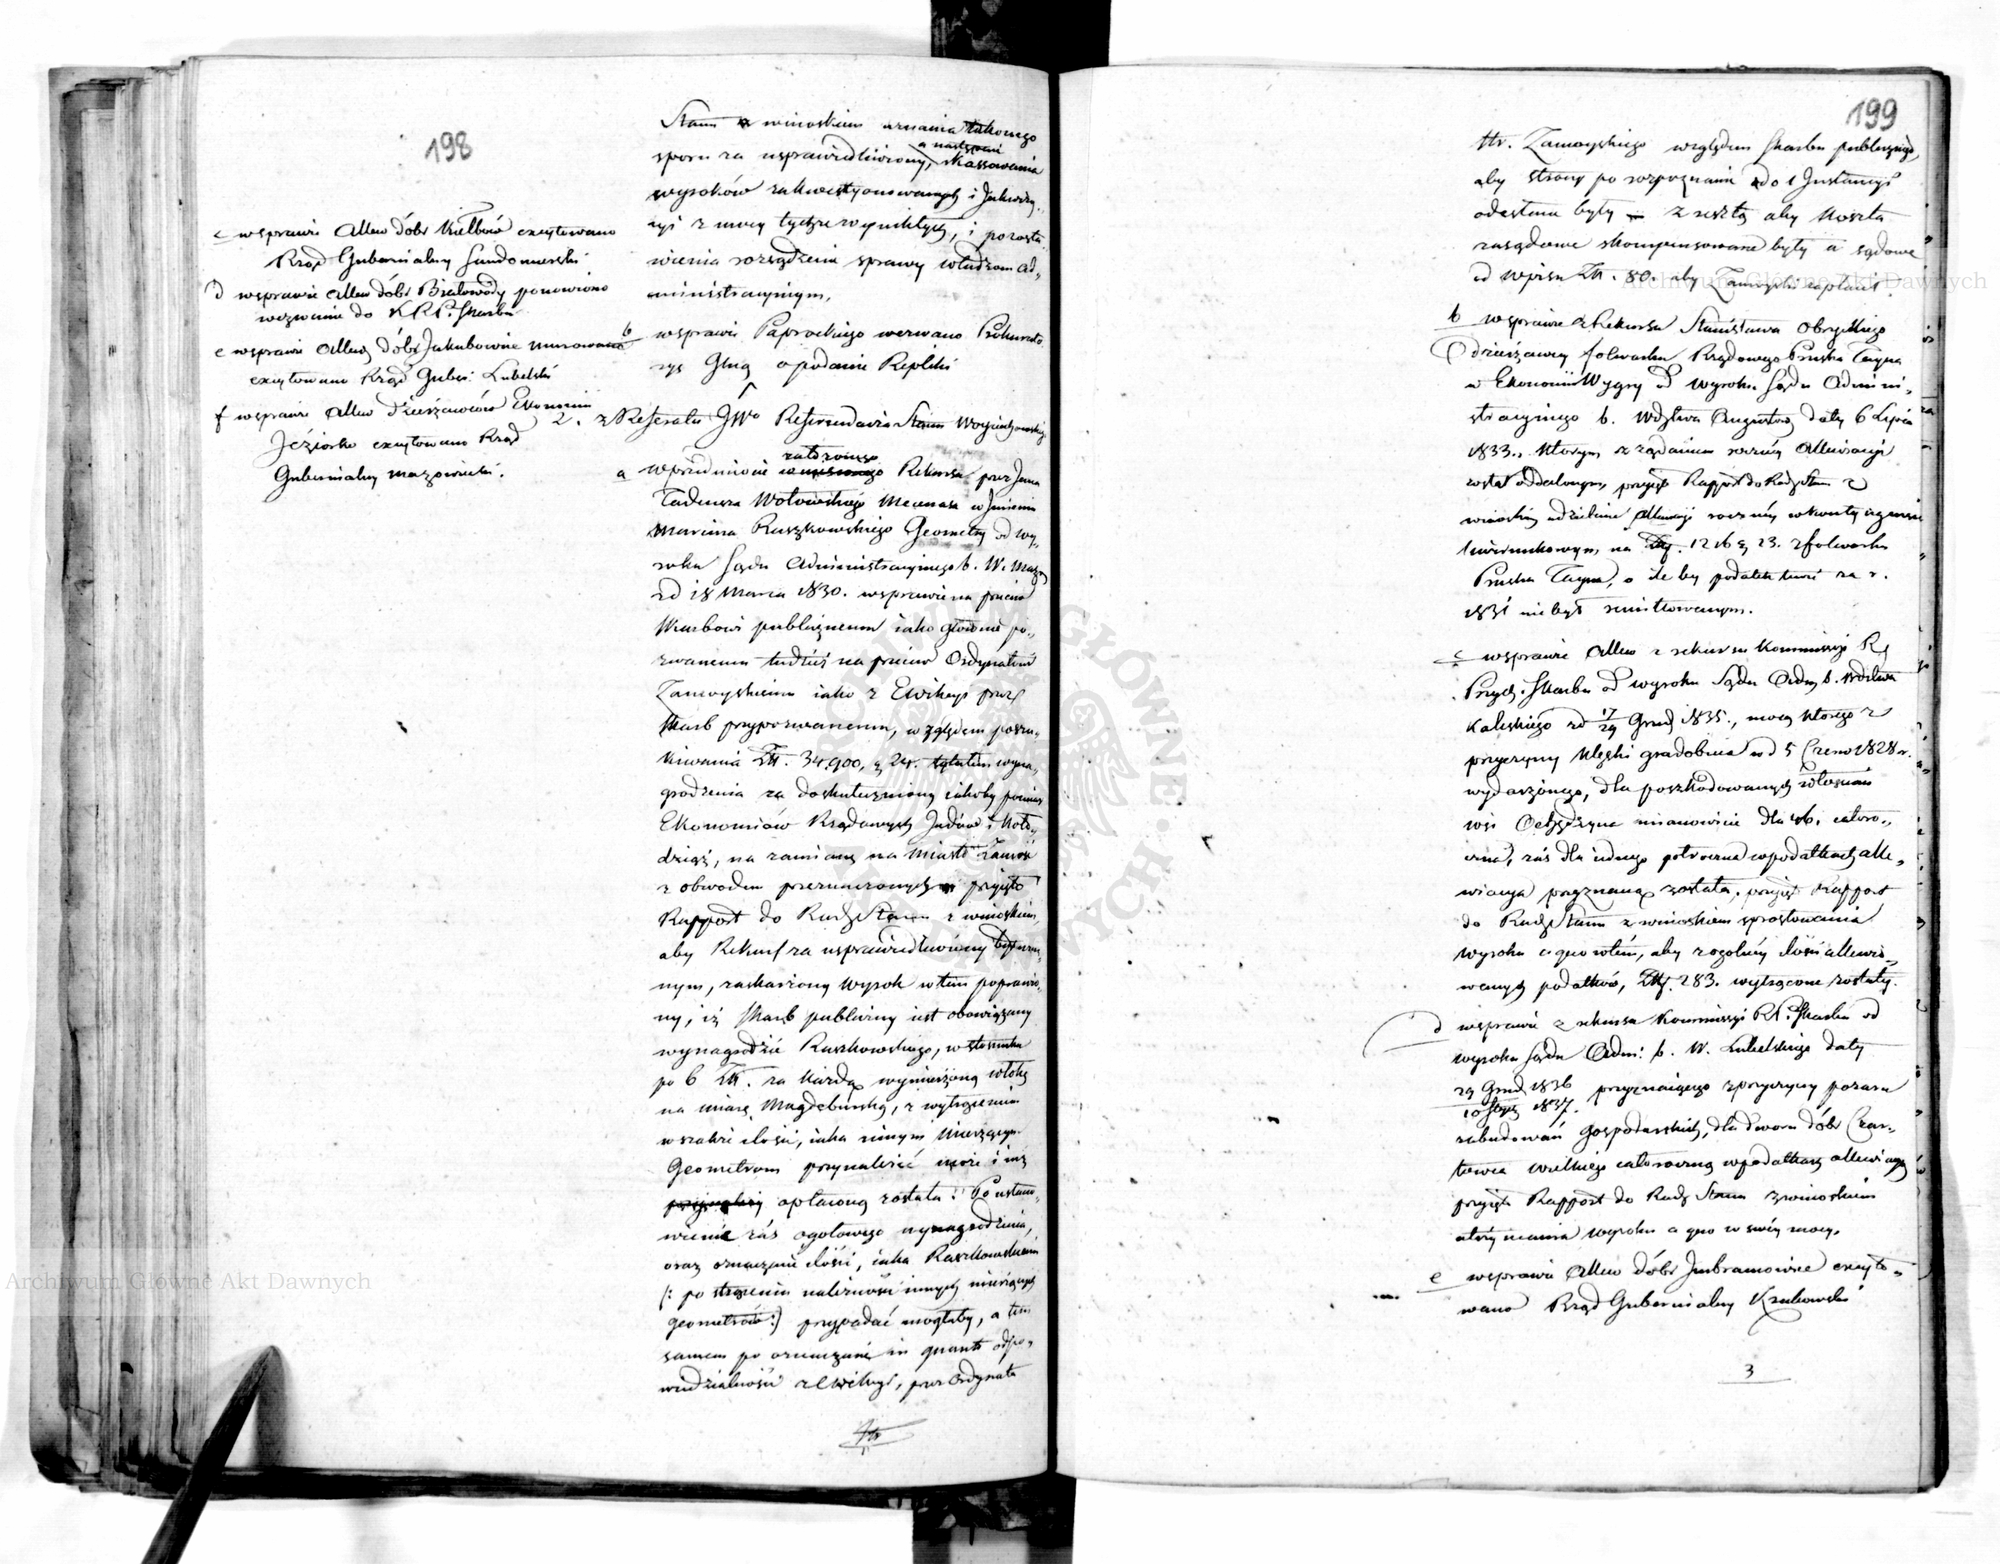 198
c wsprawie Allew dóbr Kiełbów excytowano
Rząd Gubernialny Sandomierski
d wsprawie Allew dóbr Białowody ponowiono
wezwanie do KRP. Skarbu
e wsprawie Allew dóbr Jakubowice murowane
excytowano Rząd Guber: Lubelski
f wsprawie Allew dzierżawców Ekonomii
Jeziorko excytowano Rząd
Gubernialny Mazowiecki.
Stanu z wnioskiem uznania takowego
sporu za usprawiedliwiony, a następnie skassowania
wyroków zakwestyonowanych i
z mocy tychże wynikłych, i pozosta-
wienia rozsądzenia sprawy władzom ad-
ministracyinym,
b wsprawie Paprockiego wezwano Prokurato-
ryę Głną o podanie Repliki
2. z Referatu JWo Referendarza Stanu Woyciechowskiego
a wprzedmiocie założonego Rekursu przez Jana
Tadeusza Wołowskiego Mecenasa w Jmieniu
Marcina Raszkowskiego Geometry od wy-
roku Sądu Administracyinego b. W. Mazo
zd 18 Marca 1830. wsprawie na przeciw
Skarbowi publicznemu iako głównie po-
zwanemu tudzież na przeciw Ordynatowi
Zamoyskiemu iako z Ewikcyi przez
Skarb przypozwanemu, względem poszu-
kiwania Złt. 34,900, g 24. tytułem wyna-
grodzenia za doskutecznioną iakoby pomiar
Ekonomiów Rządowych Jadów i Koło-
dziąż, na zamianę na Miasto Zamość
z obwodem przeznaczonych przyięto
Rapport do Rady Stanu z wnioskiem,
aby Rekurs za usprawiedliwiony
nym, zaskarżony wyrok wtem poprawio-
ny, iż Skarb publiczny iest obowiązany
wynagrodzić Raszkowskiego, wstosunku
po 6 Złt. za każdą wymierzoną włókę
na miarę Magdeburską, z wytrąceniem
wszakże ilości, iaka innym Mierzącym
Geometrom przynależeć może i im
opłaconą została. Postano-
wienie zaś ogółowego wynagrodzenia,
oraz oznaczenie ilości, iaka Raszkowskiemu
(: po strąceniu należności innych mierzących
geometrów:) przypadać mogłaby, a tem
samem po oznaczenie in quanto odpo-
wiedzialności z Ewikcyi, przez Ordynata
199
Hr. Zamoyskiego względem Skarbu publicznego,
aby strony po rozpoznanie do 1 Instancyi
odesłane były – zresztą aby koszta
zasądowe skompensowane były a sądowe
od wpisu Złt. 80. aby Zamoyski zapłacił.
b wsprawie z Rekursu Stanisława Obryckiego
Dzierżawcy folwarku Rządowego Pruska Tayna
w Ekonomii Wygry od wyroku Sądu Admini-
stracyinego b. Wdztwa Augustow daty 6 Lipca
1833., którym z żądaniem swoim Allewiacyi
został oddalonym, przyięto Rapport do Rady Stanu z
wnioskiem udzielenia Allewacyi rocznéy wkwotach czynszu
kwerunkowym, na Złt. 1216 g 23. z folwarku
Pruska Tayna, o ile by podatek tenże za r.
1831 nie był remittowanym.
c wsprawie Allew z rekursu Kommissyi R
Przych: Skarbu od wyroku Sądu Adm. b. Wdztwa
Kaliskiego zd 17/29 Grud 1835., mocą którego z
przyczyny klęski gradobicia wd 5 Czerw 1828 r.
wydarzonego, dla poszkodowanych włościan
wsi mianowicie dla 46. całoro-
czna, zaś dla iednego półroczna wpodatkach alle-
wiacya przyznaną została, przyięto Rapport
do Rady Stanu z wnioskiem sprostowania
wyroku a quo wtém, aby zogólnéy ilości allewio-
wanych podatków, Złt. 283. wytrącone zostały.
d wsprawie z rekursu Kommissyi RP. Skarbu od
wyroku Sądu Adm: b. W. Lubelskiego daty
29 Grud 1836 / 10 Stycz 1837. przyznaiącego zprzyczyny pożaru
zabudowań gospodarskich, dla dworu dóbr Czar-
towca wielkiego całoroczną wpodatkach allewiacyą
przyięto Rapport do Rady Stanu z wnioskiem
utrzymania wyroku a quo w swéy mocy.
e wsprawie Allew dóbr Jmbramowice excyto-
wano Rząd Gubernialny Krakowski
3
Archiwum Główne Akt Dawnych
Archiwum Główne Akt Dawnych